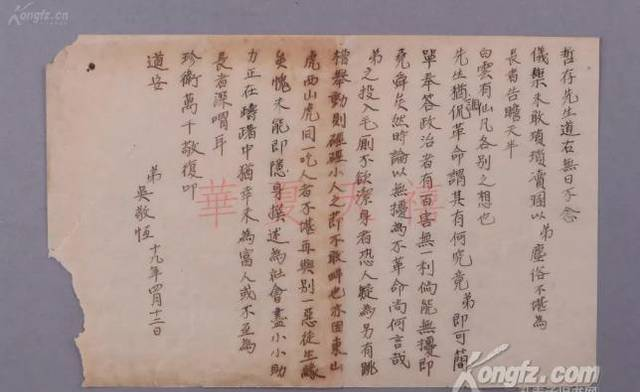 Kongfz.cn
哲存先生道右無日不念
儀榘未敢瑣瑣瀆固以弟塵俗不堪為
長者告瞻天半
白雲有仙凡各別之想也
先生猶侃調革命謂其有何究竟弟即可簡
單奉答政治者有百害無一利倘能無擾即
堯舜矣然時論以無擾為不革命尚何言哉
弟之投入毛厠不飲潔身者恐人疑為另有跳
槽舉動則硜硜小人之節不敢畔也亦因東山
虎西山虎同一吃人者不堪再與別一惡徒生緣
矣愧未能即隱身撰述為社會盡小小助
力正在躊躇中猶幸未為富人或不至為
長者深喟耳
珍衛萬千敬復叩
道安
弟吳敬恆 十九年四月十二日
華夏天禧
Kongfz.com